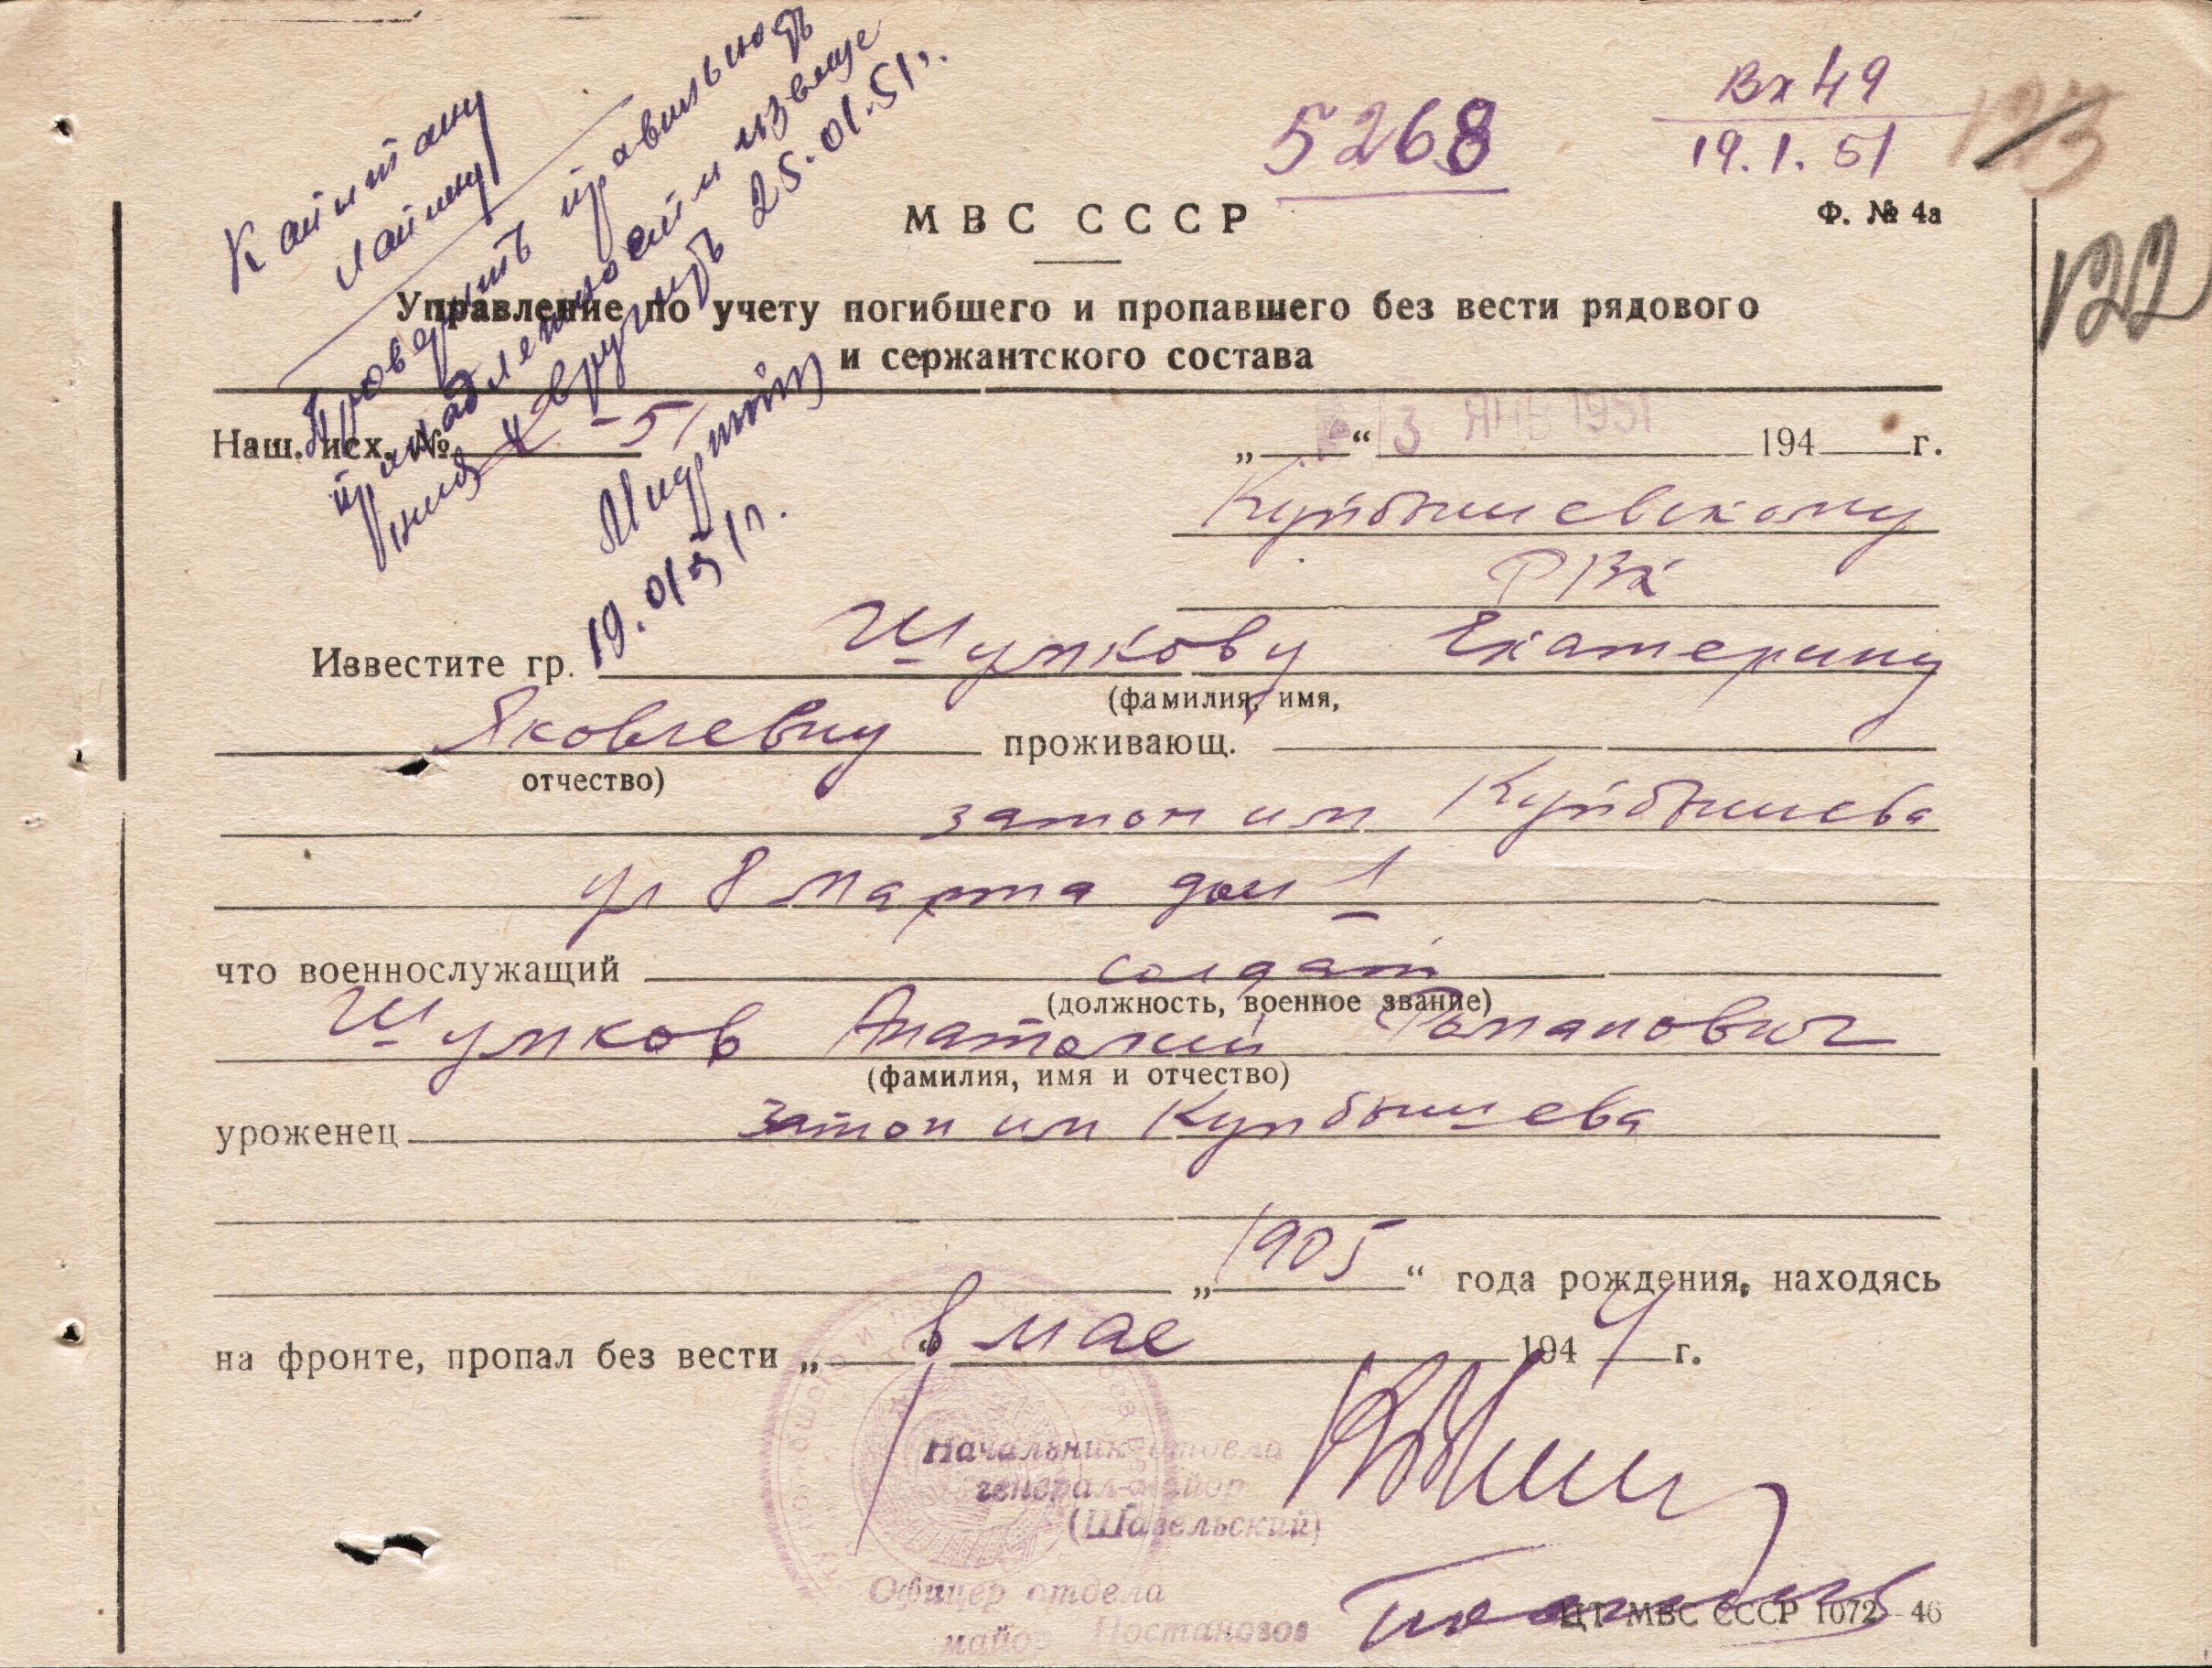 Капитану
Лапину
Проверить правильность
принадлежности извеще
ния и вручить 25.01.51г.
19.01.51г.
5268
Вх 49
19.1.51
123
122
Ф. № 4а
МВС СССР
Управление по учету погибшего и пропавшего без вести рядового
и сержантского состава
Наш. исх. № -51
„ “ 13 ЯНВ 1951 194 г.
Куйбышевскому
РВК
Известите гр. Шумкову Екатерину
(фамилия, имя,
Яковлевну проживающ.
отчество)
затон им Куйбышева
ул 8 Марта дом 1
что военнослужащий солдат
(должность, военное звание)
Шумков Анатолий Романович
(фамилия, имя и отчество)
уроженец затон им Куйбышева
„1905“ года рождения, находясь
на фронте, пропал без вести „ “ в мае 1944 г.
Начальник отдела
генерал-майор
(Шавельский)
Офицер отдела
майор Постановов
ЦТ МВС СССР 1072—46